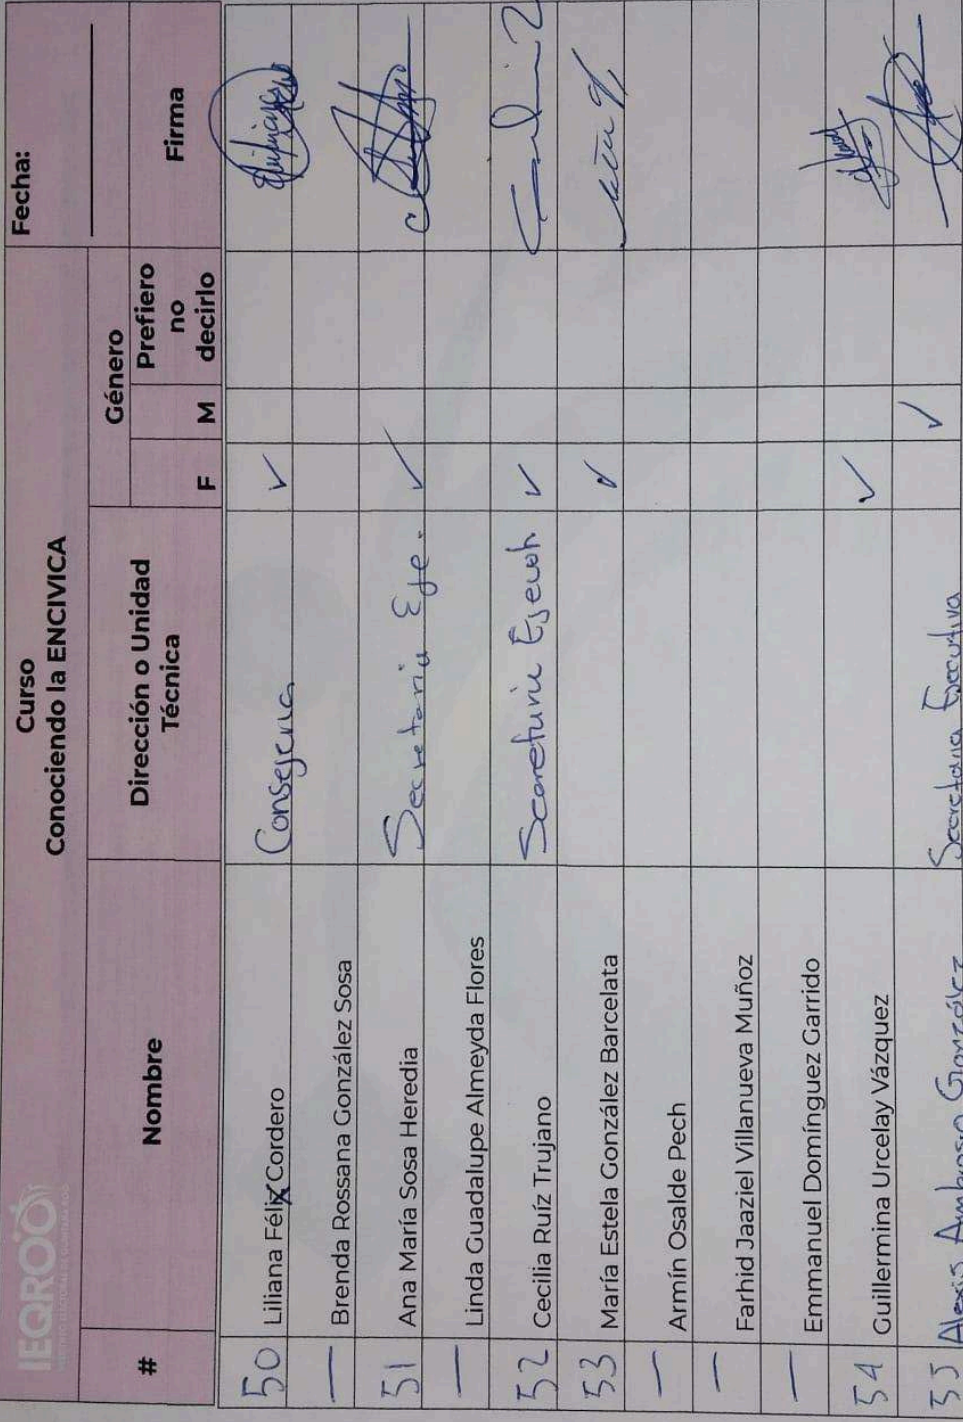 IEQROO
Curso
Conociendo la ENCIVICA
Fecha:
#
Nombre
Dirección o Unidad
Técnica
Género
F
M
Prefiero
no
decirlo
Firma
50 Liliana Félix Cordero Consejeria ✓
— Brenda Rossana González Sosa
51 Ana María Sosa Heredia Secretaria Eje. ✓
— Linda Guadalupe Almeyda Flores
52 Cecilia Ruíz Trujano ✓
53 María Estela González Barcelata ✓
— Armín Osalde Pech
— Farhid Jaaziel Villanueva Muñoz
— Emmanuel Domínguez Garrido
54 Guillermina Urcelay Vázquez ✓
55 Alexis Ambrosio González Secretaria Ejecutiva ✓